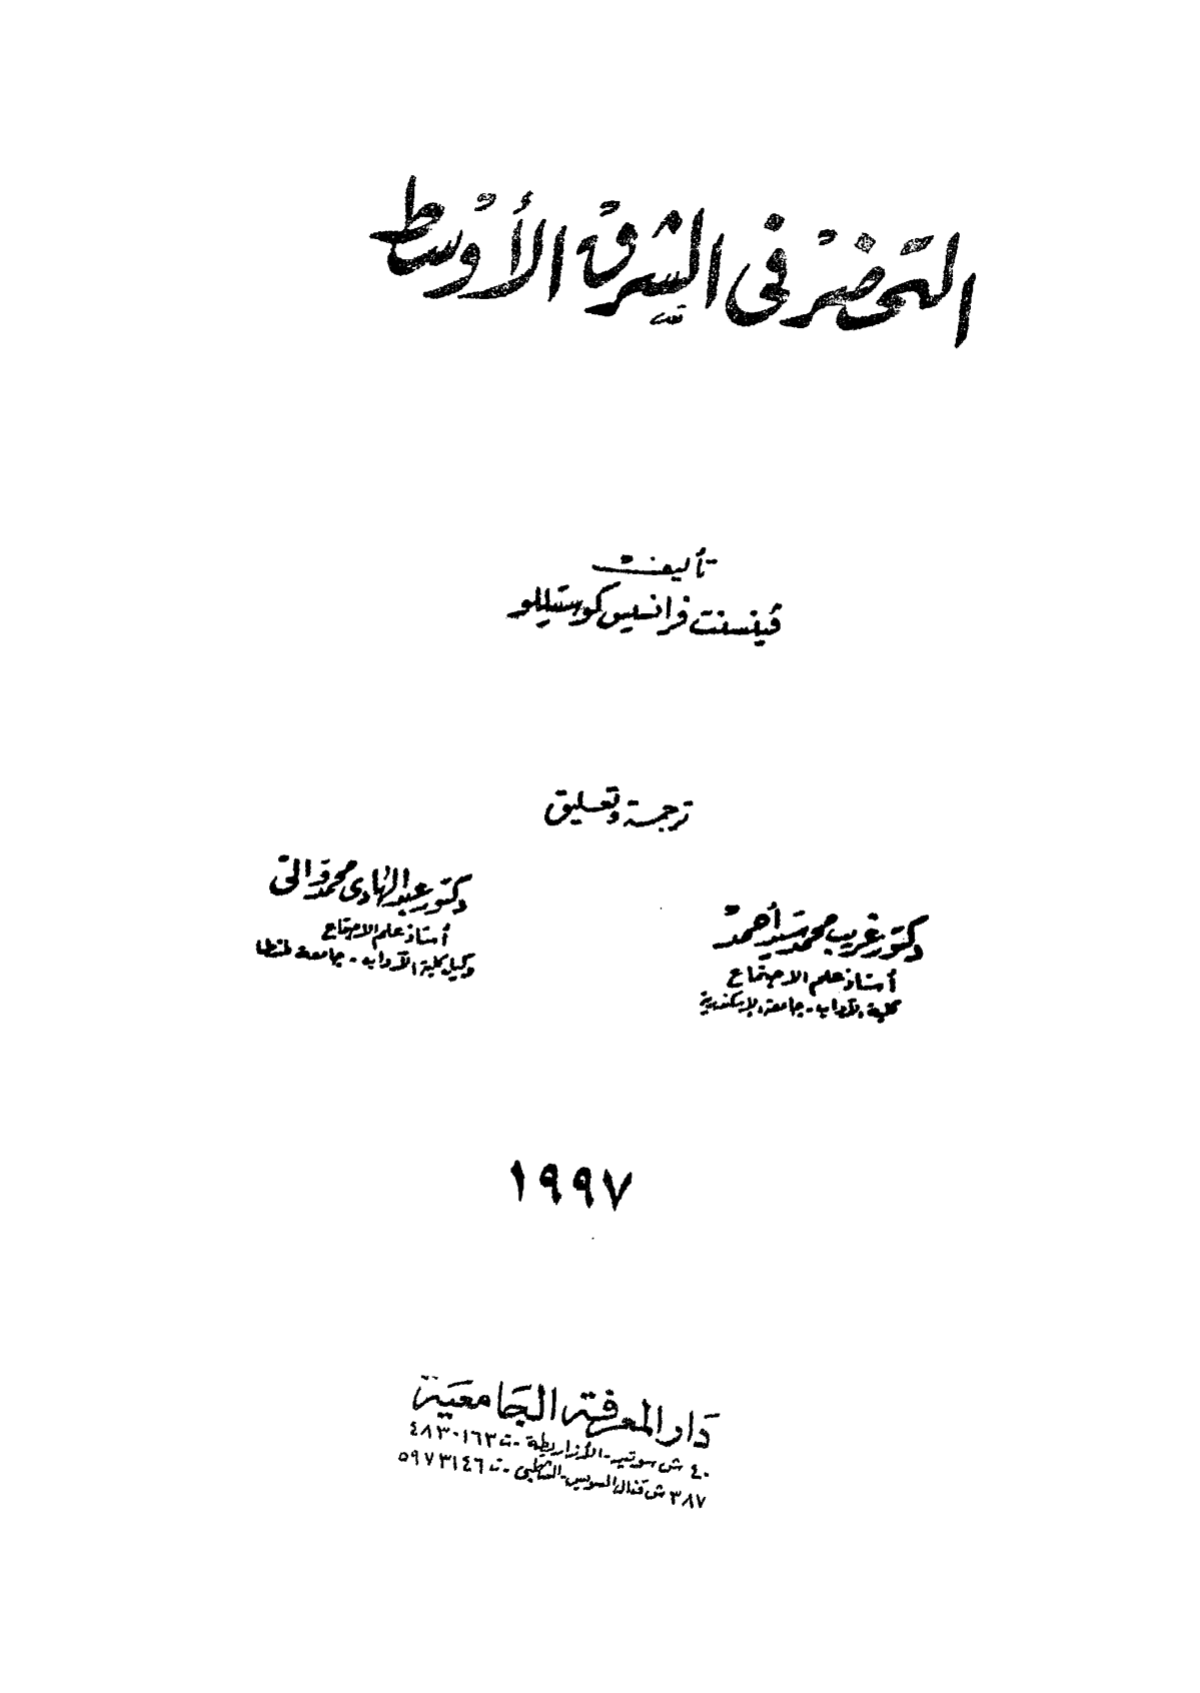 التحضر فى الشرق الأوسط
تأليف
ڤينسنت فرانسيس كوستيللو
ترجمة وتعليق
دكتور غريب محمد سيد أحمد
أستاذ علم الاجتماع
كلية الآداب - جامعة الإسكندرية
دكتور عبد الهادى محمد والى
أستاذ علم الاجتماع
وكيل كلية الآداب - جامعة طنطا
١٩٩٧
دار المعرفة الجامعية
٤٠ ش سوتير - الأزاريطة - ت ٤٨٣٠١٦٣
٣٨٧ ش قنال السويس - الشاطبى - ت ٥٩٧٣١٤٦